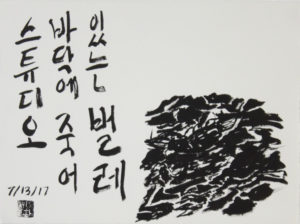 스튜디오
바닥에 죽어
있는 벌레
7/13/17